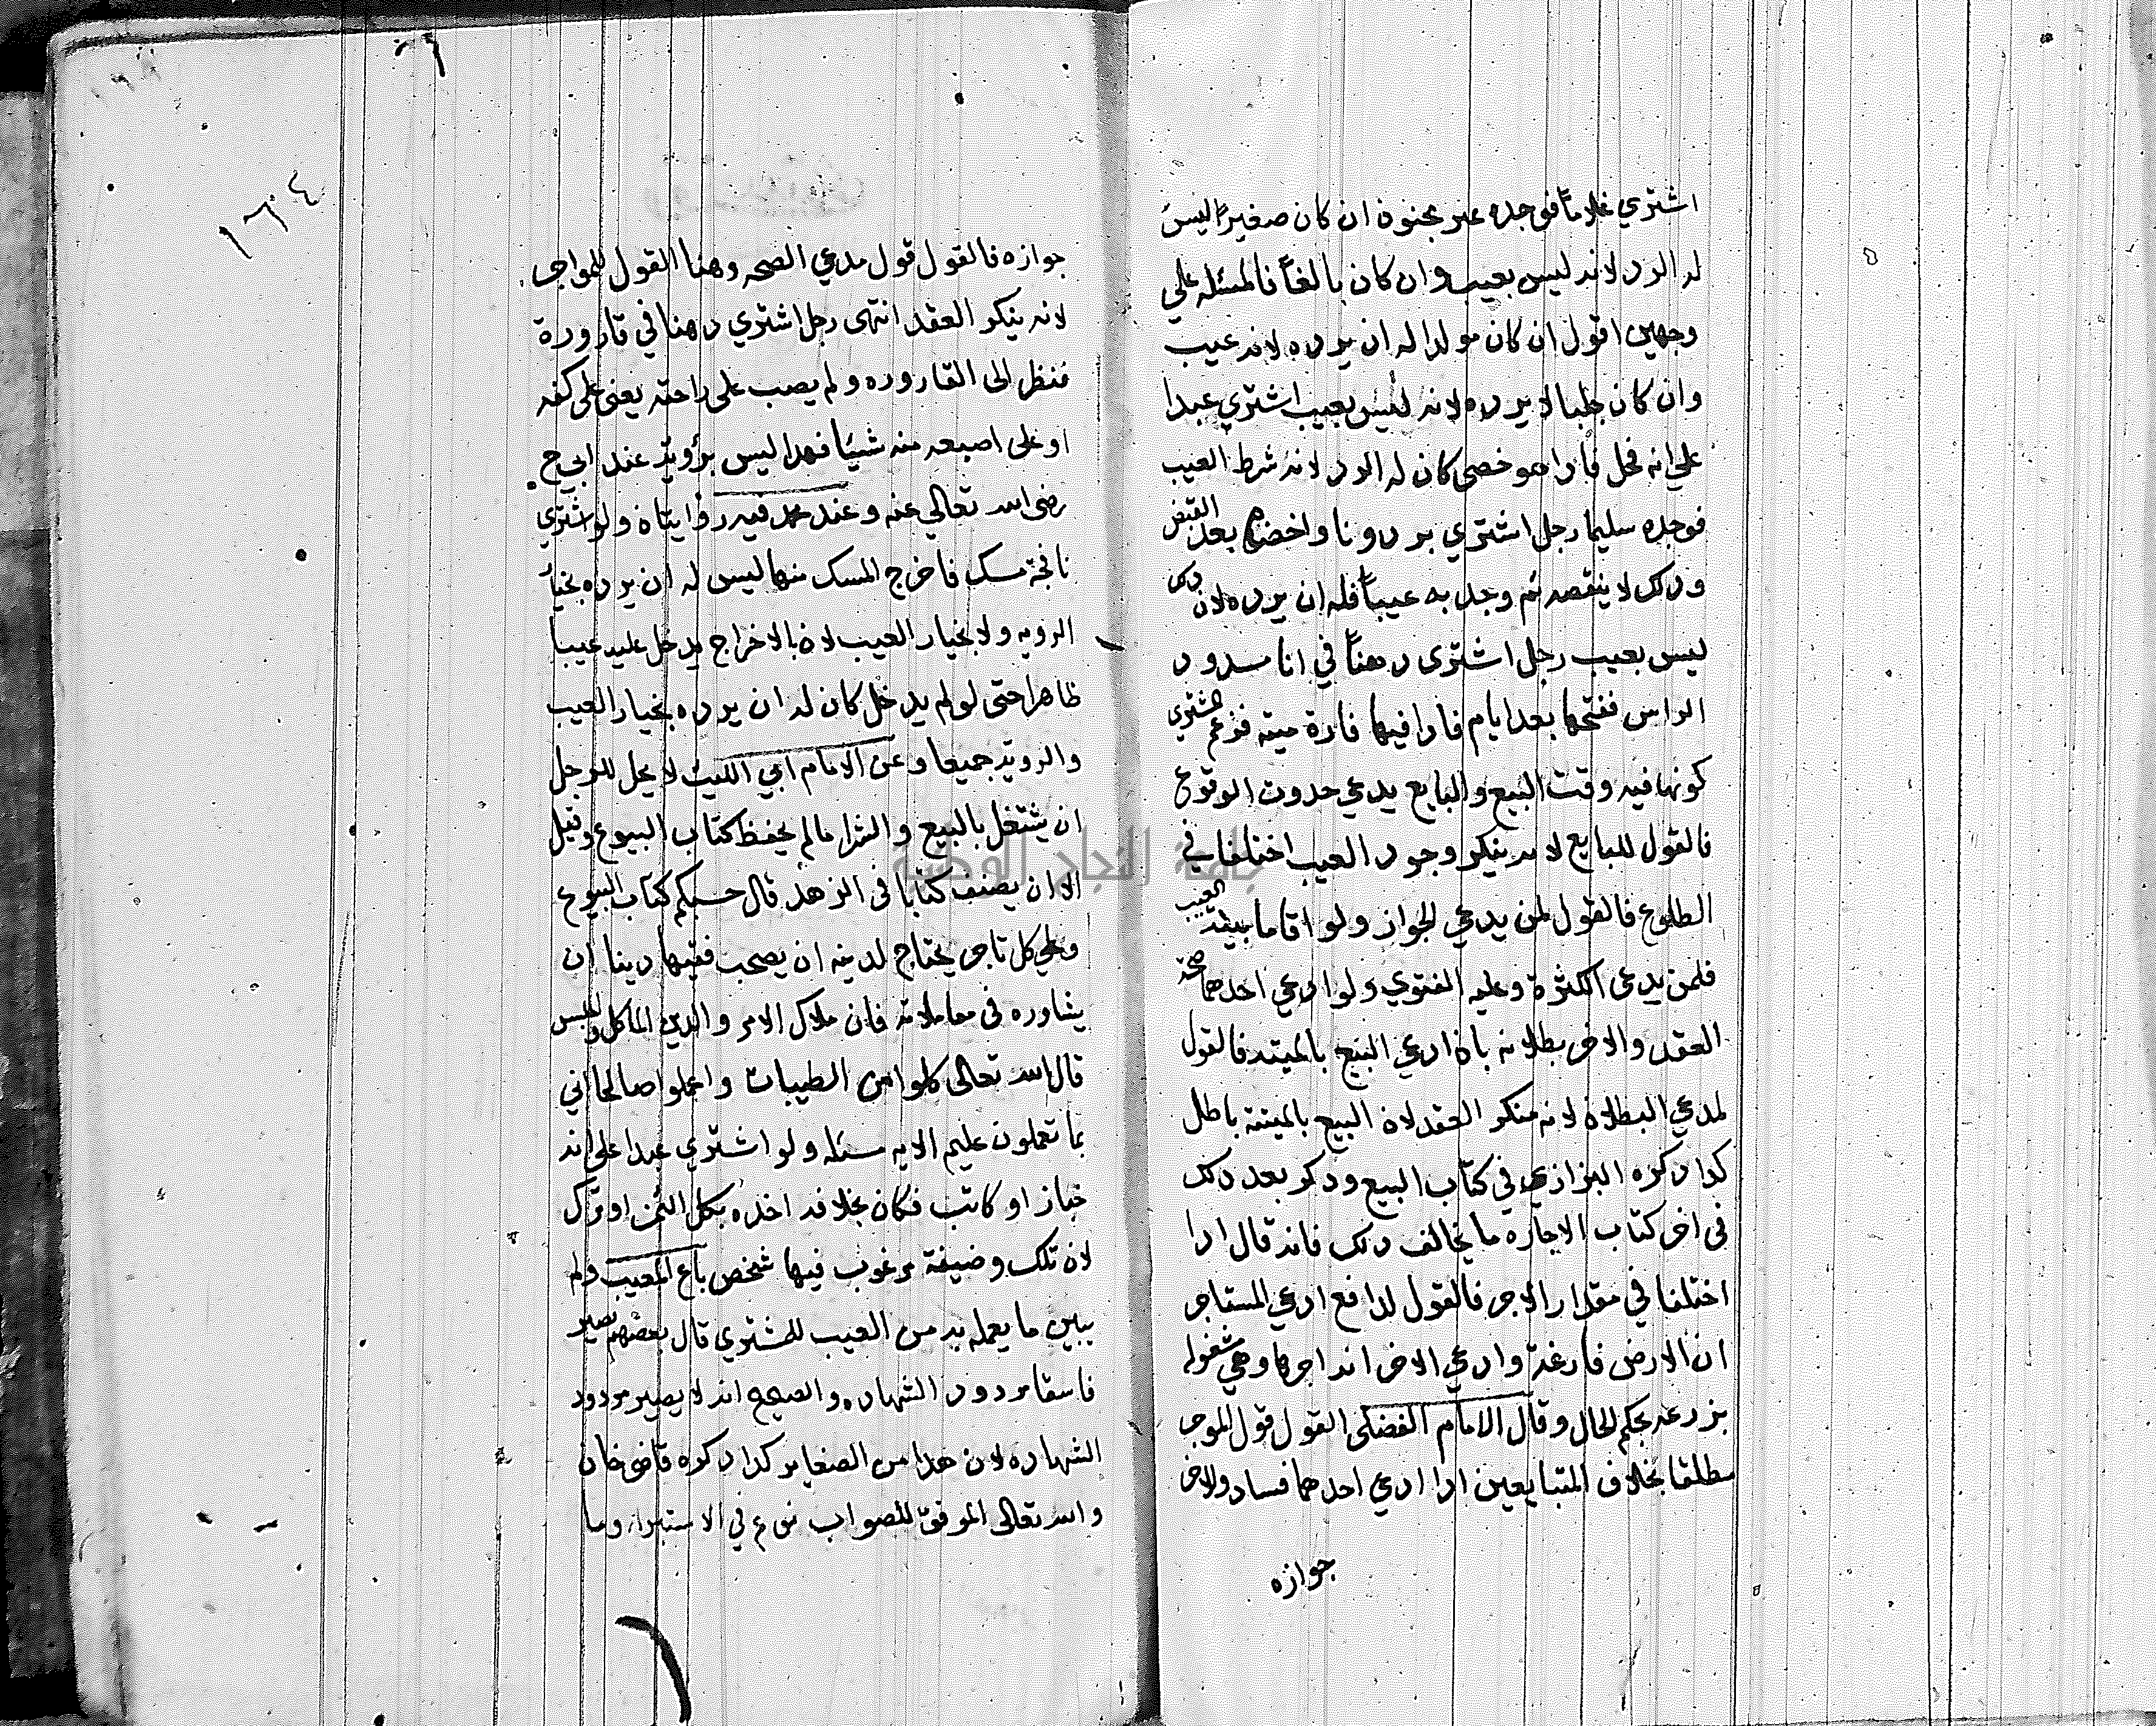 اشتري غلاماً فوجده غير مختون ان كان صغيراً ليس
له الرد لانه ليس بعيب وان كان بالغاً فالمسئله علي
وجهين اقول ان كان مولدا له ان يرده لانه عيب
وان كان جلبا لا يرده لانه ليس بعيب اشتري عبدا
علي انه فحل فاذا هو خصي كان له الرد لانه شرط العيب
فوجده سليما رجل اشتري برذونا واخصاه بعد القبض
وذلك لا ينقصه ثم وجد به عيباً فله ان يرده لان ذلك
ليس بعيب رجل اشتري دهناً في انا مسدود
الراس ففتحها بعد ايام فاذا فيها فارة ميته فزعم المشتري
كونها فيه وقت البيع والبايع يدعي حدوث الوقوع
فالقول للبايع لانه ينكر وجود العيب اختلفا في
الطلوع فالقول لمن يدعي الجواز ولو اقاما بينة العيب
فلمن يدعي الكثرة وعليه الفتوي ولو ادعي احدهما صحة
العقد والاخر بطلانه بان ادعي البيع بالميته فالقول
لمدعي البطلان لانه منكر العقد لان البيع بالميتة باطل
كذا ذكره البزازي في كتاب البيع وذكر بعد ذلك
في اخر كتاب الاجاره ما يخالف ذلك فانه قال اذا
اختلفا في مقدار الاجر فالقول لدافع ادعي المستاجر
ان الارض فارغة وادعي الاخر انه اجرها وهي مشغوله
بزرعه بحكم الحال وقال الامام الفضلي القول قول الموجر
مطلقا بخلاف المتبايعين اذا ادعي احدهما فساد والاخر
جوازه
١٦٤
جوازه فالقول قول مدعي الصحه وهنا القول للمواجر
لانه ينكر العقد انتهي رجل اشتري دهنا في قارورة
فنظر الي القاروره ولم يصب علي راحته يعني علي كفه
او علي اصبعه منه شيئا فهذا ليس برؤية عند ابي ح
رضي الله تعالي عنه وعند محمد فيه روايتان ولو اشتري
نافجة مسك فاخرج المسك منها ليس له ان يرده بخيار
الرويه ولا بخيار العيب لان بالاخراج يدخل عليه عيبا
ظاهرا حتي لو لم يدخل كان له ان يرده بخيار العيب
والروية جميعا وعن الامام ابي الليث لا يحل للرجل
ان يشتغل بالبيع والشرا ما لم يحفظ كتاب البيوع وقيل
الا ان يصنف كتابا في الزهد قال حسبكم كتاب البيوع
وعلي كل تاجر يحتاج لدينه ان يصحب فقيها دينا ان
يشاوره في معاملاته فان ملاك الامر والدين الماكل والملبس
قال الله تعالي كلوا من الطيبات واعملوا صالحا اني
بما تعملون عليم الايه مسئله ولو اشتري عبدا علي انه
خباز او كاتب فكان بخلافه اخذه بكل الثمن او ترك
لان تلك وضيفة مرغوب فيها شخص باع المعيب ولم
يبين ما يعمله به من العيب للمشتري قال بعضهم يصير
فاسقا مردود الشهاده والصحيح انه لا يصير مردود
الشهاده لان هذا من الصغاير كذا ذكره قاضي خان
والله تعالي الموفق للصواب نوع في الاستبرا وما
جامعة النجاح الوطنية